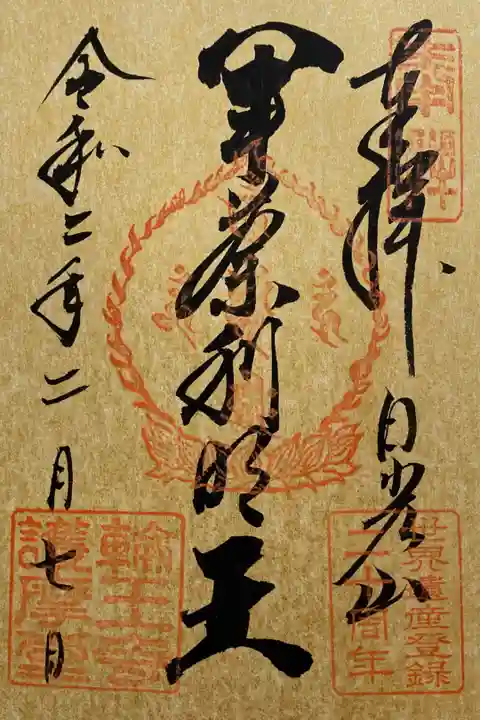 奉拝 日光山
軍荼利明王
令和二年二月七日
世界遺産登録
二十周年
輪王寺
護摩堂